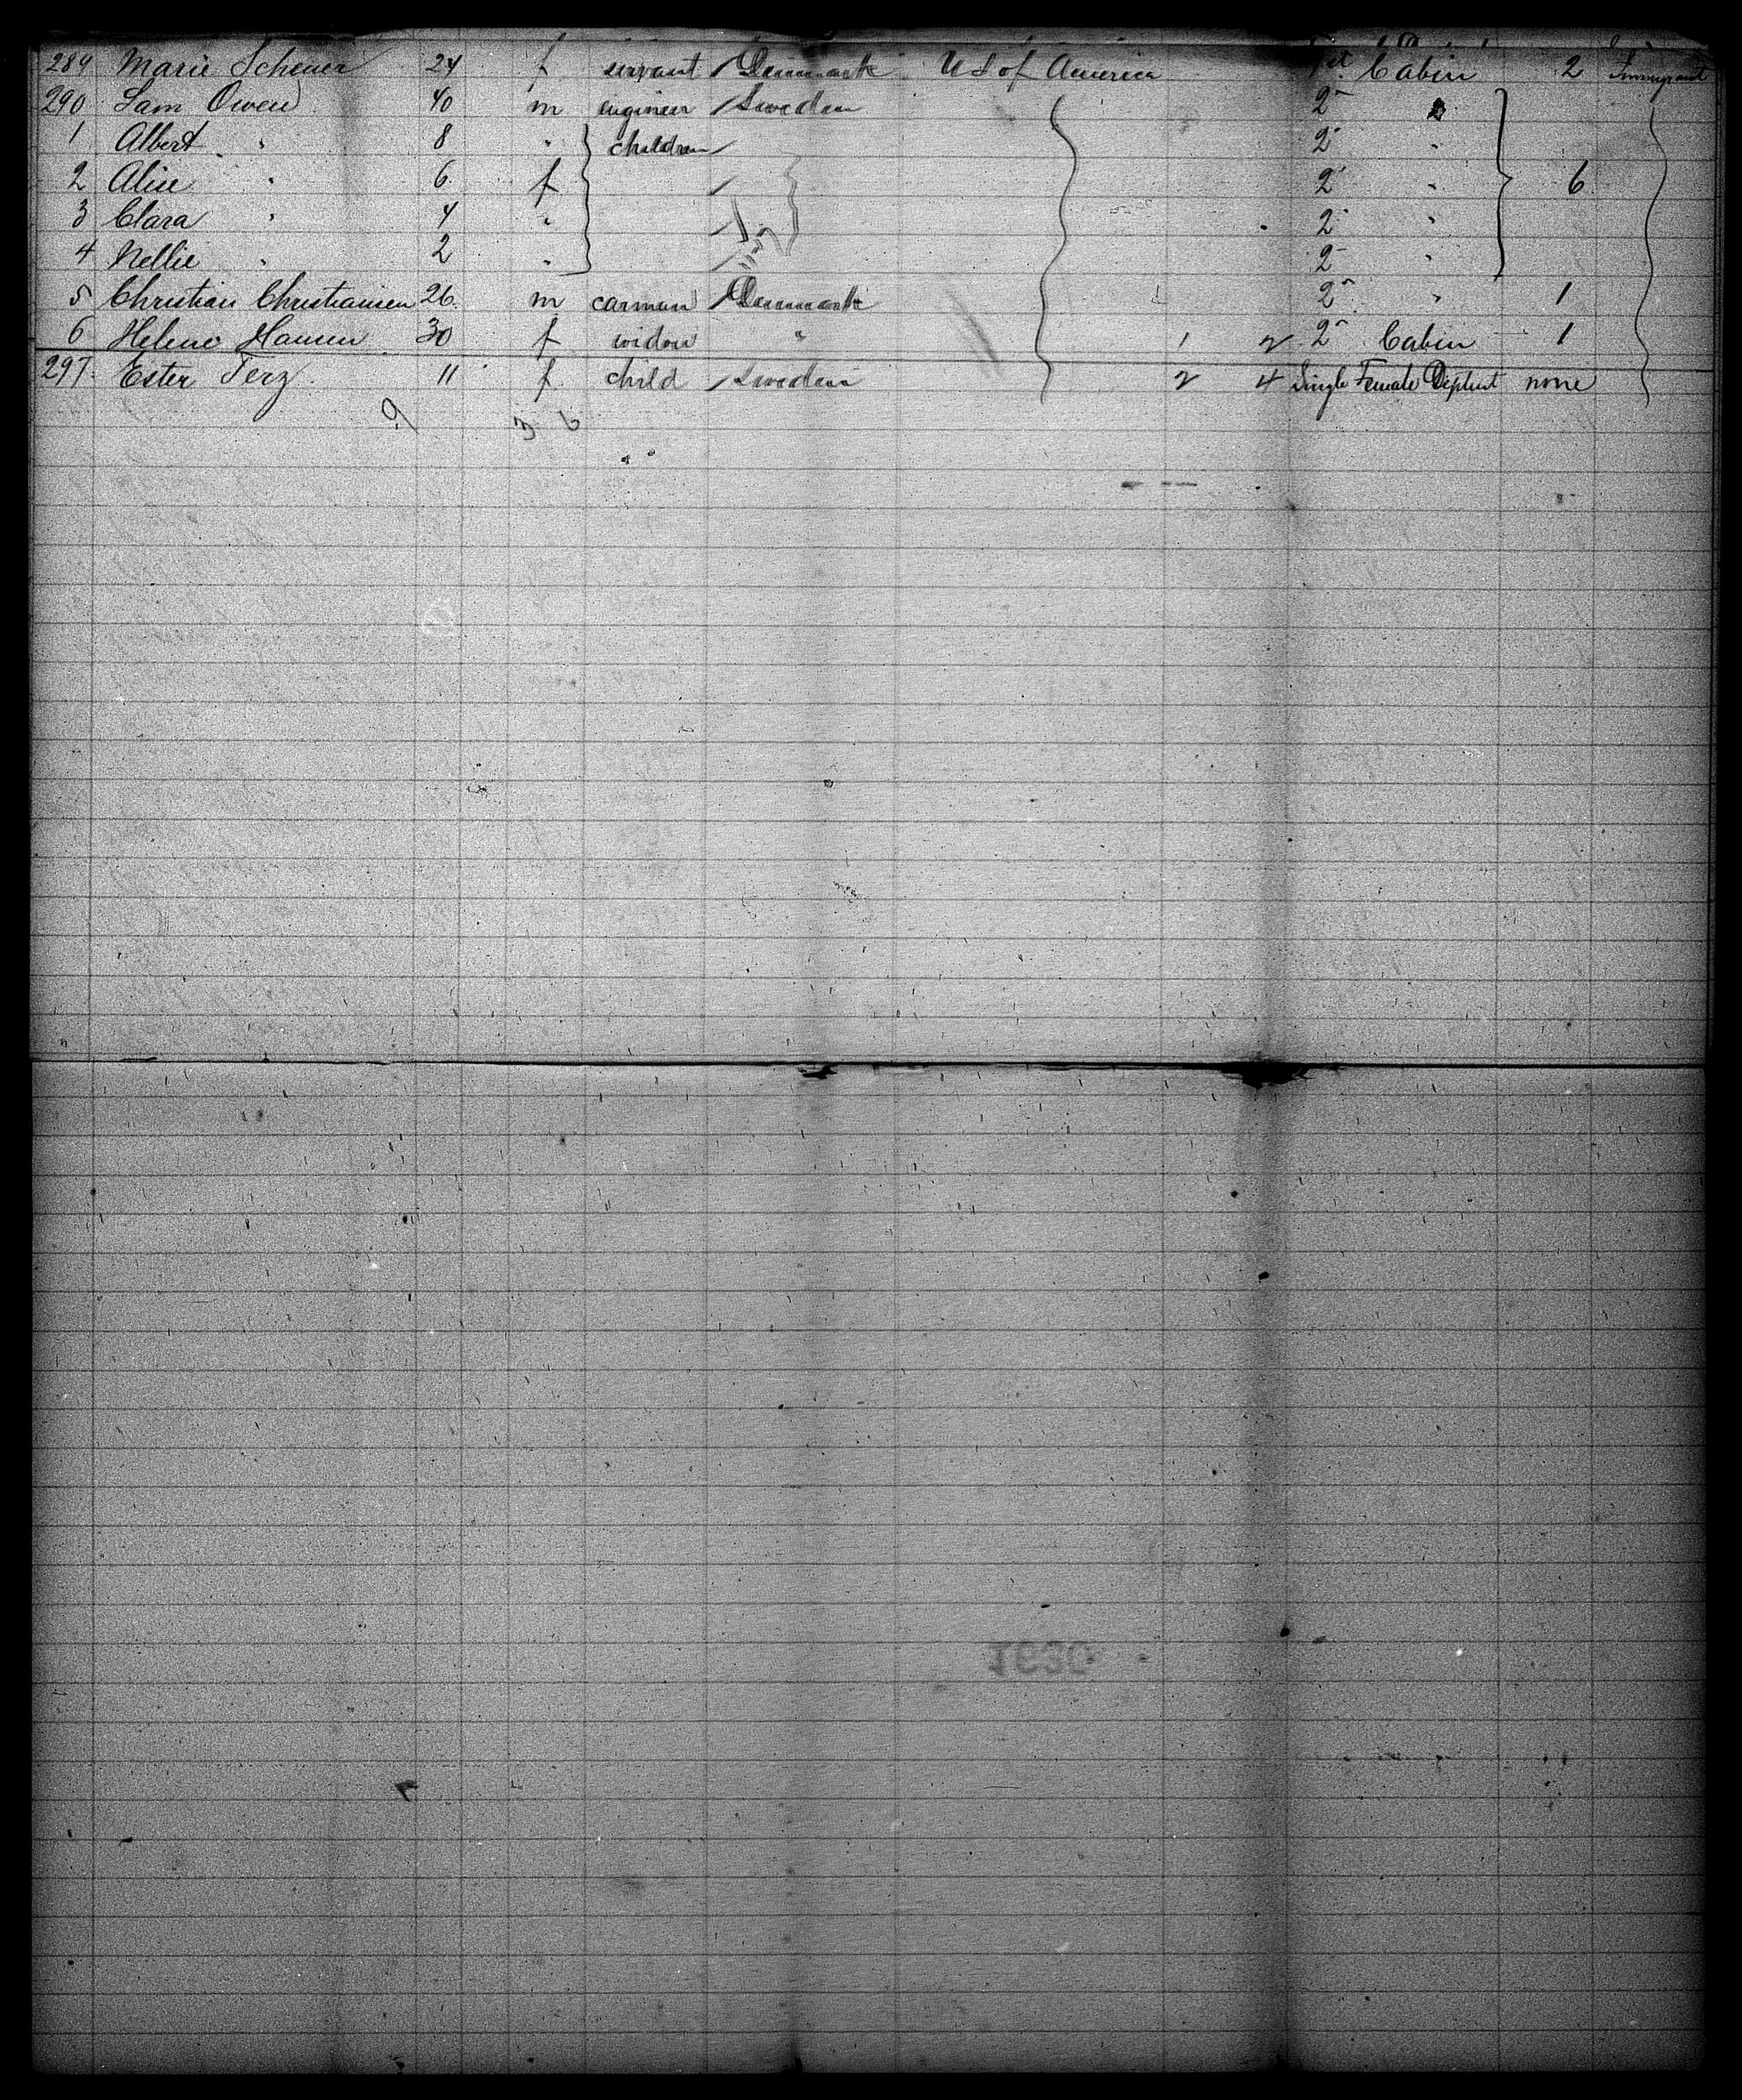 289 Marie Scheuer 24 f servant Denmark U S of America 1st Cabin 2 Immigrant
290 Sam Owen 40 m engineer Sweden 2d "
1 Albert " 8 " children 2d "
2 Alise " 6 f 2d " 6
3 Clara " 4 " 2d "
4 Nellie " 2 " 2d "
5 Christian Christiansen 26 m carman Denmark 2d " 1
6 Helene Hansen 30 f widow " 1 2 2d Cabin 1
297 Ester Terz 11 f child Sweden 2 4 Single Female Deptmt none
9 3 6
1630